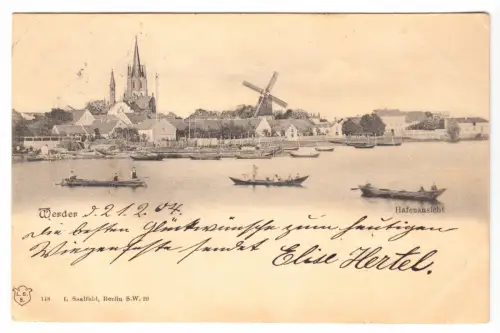 Werder d. 21.2.04. Hafenansicht
Die besten Glückwünsche zum heutigen
Wiegenfeste sendet Elise Hertel.
L. S. B. 148 L. Saalfeld, Berlin S.W. 29